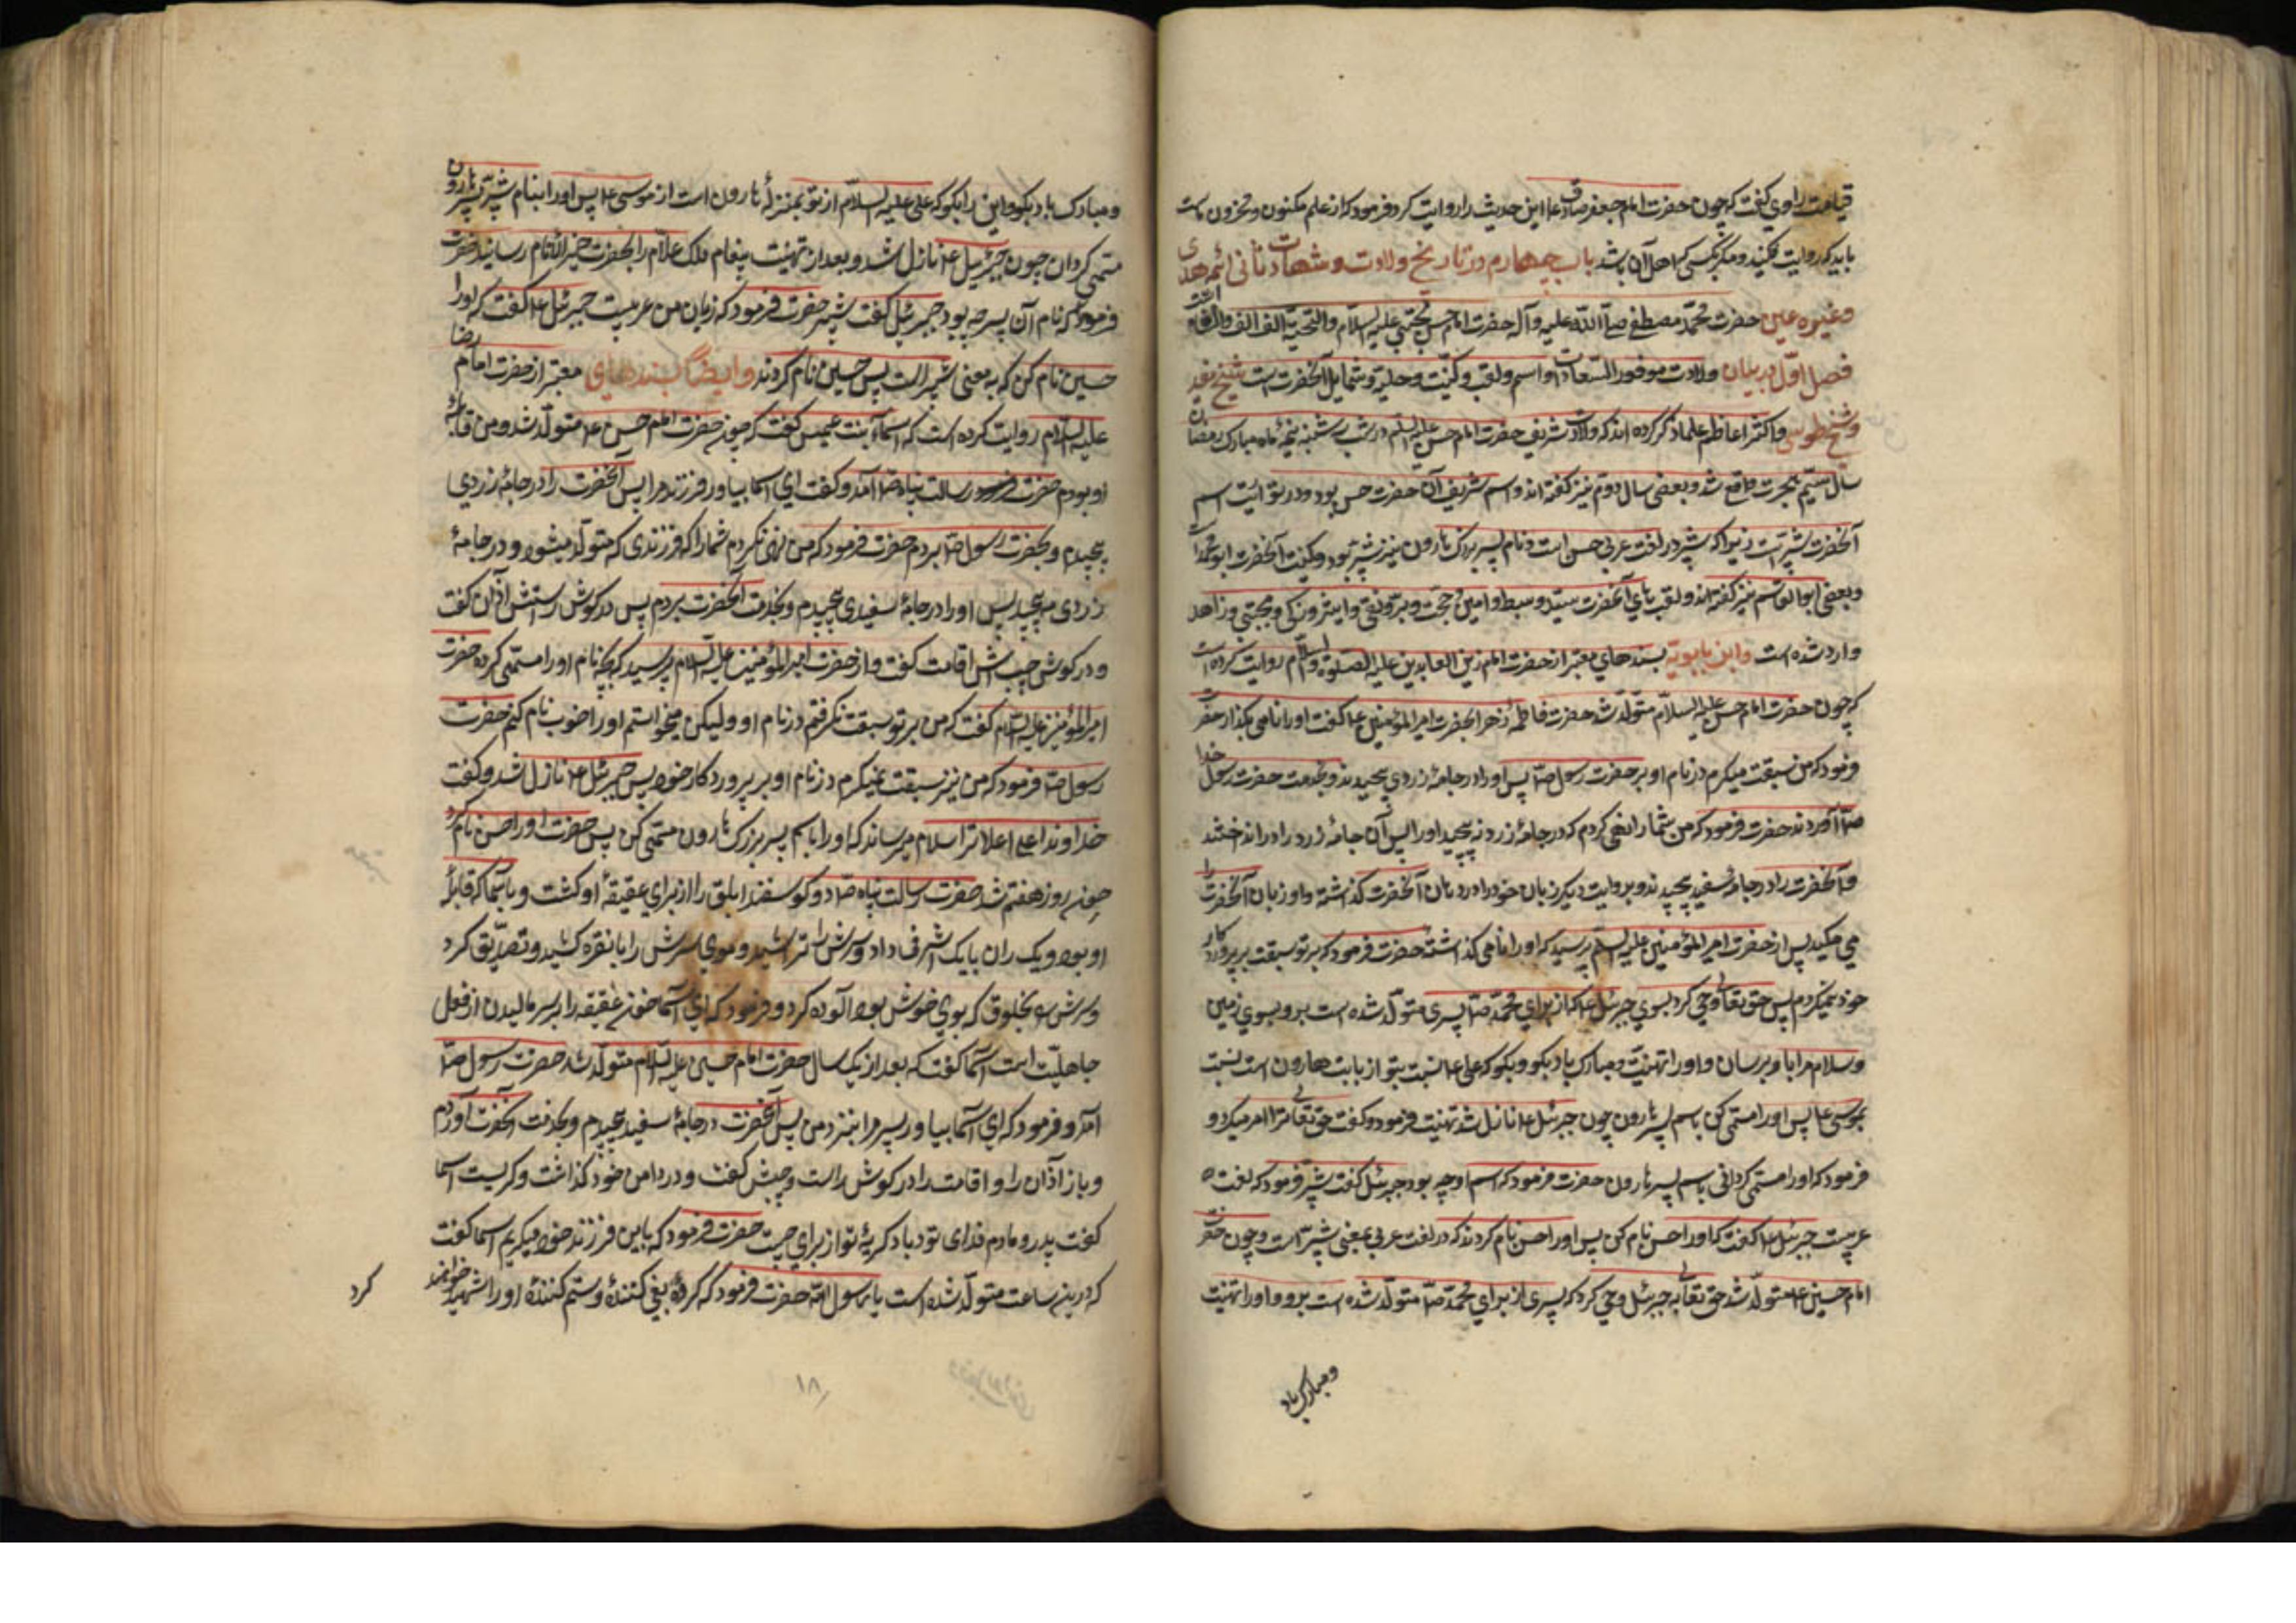 قیامت راوی گفت که چون حضرت امام جعفر صادق ع این حدیث را روایت کرد فرمود که از علم مکنون و مخزون ماست
باید که روایت نکنید و مگر بکسی که اهل آن باشد باب چهارم در تاریخ ولادت و شهادت ثانی ائمه هدی
و غیره عین حضرت محمد مصطفی صلی الله علیه و آله حضرت امام حسن مجتبی علیه السلام والتحیة الف الف
فصل اول در بیان ولادت موفور السعادت و اسم و لقب و کنیت و حلیه و شمایل آنحضرت است شیخ مفید
و شیخ طوسی و اکثر اعاظم علما ذکر کرده اند که ولادت شریف حضرت امام حسن علیه السلم در شب سه شنبه نیمه ماه مبارک رمضان
سال سیم هجرت واقع شد و بعضی سال دوم نیز گفته اند و اسم شریف آن حضرت حسن بود و در توراة اسم
آنحضرت شبر است زیرا که شبر در لغت عربی حسن است و نام پسر بزرک هارون نیز شبر بود و کنیت آنحضرت ابو محمد است
و بعضی ابو القاسم نیز گفته اند و لقب های آنحضرت سید و سبط و امین و حجت و بر و تقی و اثیر و زکی و مجتبی و زاهد
وارد شده است و ابن بابویه بسندهای معتبر از حضرت امام زین العابدین علیه الصلوة والسلام روایت کرده است
که چون حضرت امام حسن علیه السلام متولد شد حضرت فاطمه زهرا بحضرت امیر المؤمنین ع گفت او را نامی بگذار حضرت
فرمود که من سبقت نمیکیرم در نام او بر حضرت رسول ص پس او را در جامهٔ زردی پیچیدند و بخدمت حضرت رسول خدا
ص آوردند حضرت فرمود که من شما را نهی کردم که در جامهٔ زرد نپیچید او را پس آن جامهٔ زرد را انداختند
و آنحضرت را در جامهٔ سفید پیچیدند و بروایت دیگر زبان خود را در دهان آنحضرت گذاشته و او زبان آنحضرت را
می مکید پس از حضرت امیر المؤمنین علیه السلم پرسید که او را نامی گذاشته حضرت فرمود که بر تو سبقت بپروردکار
خود نمیکردم پس حق تعالی وحی کرد بسوی جبرئل ع که از برای محمد ص پسری متولد شده است برو بسوی زمین
و سلام مرا باو برسان و او را تهنیت و مبارک باد بکو و بکو که علی ع نسبت بتو از بابت هارون است نسبت
بموسی ع پس او را مسمی کن باسم پسر هارون چون جبرئل ع نازل شد تهنیت فرمود و گفت حق تعالی ترا امر میکرد و
فرمود که او را مسمی کردانی باسم پسر هارون حضرت فرمود که اسم او چه بود جبرئل گفت شبر فرمود که لغت
عربیست جبرئل ع گفت که او را حسن نام کن پس او را حسن نام کردند که در لغت عربی بمعنی شبر است و چون حضرت
امام حسین ع متولد شد حق تعالی به جبرئل وحی کرد که پسری از برای محمد ص متولد شده است برو و او را تهنیت
و مبارک باد
و مبارک باد بکو و این را بکو که علی علیه السلام از تو بمنزلهٔ هارون است از موسی ع پس او را بنام شبیر پسر هارون
مسمی کردان چون جبرئیل ع نازل شد و بعد از تهنیت پیغام ملک علام را بحضرت خیر الانام رسانید حضرت
فرمود که نام آن پسر چه بود جبرئل گفت شبیر حضرت فرمود که زبان من عربیست جبرئل ع گفت که او را
حسین نام کن که به معنی شبیر است پس حسین نام کردند و ایضاً بسندهای معتبر از حضرت امام رضا
علیه السلام روایت کرده است که اسماء بنت عمیس گفت که چون حضرت امام حسن ع متولد شد و من قابلهٔ
او بودم حضرت رسالت پناه ص آمد و گفت ای اسما بیاور فرزند مرا پس آنحضرت را در جامهٔ زردی
پیچیدم و بحضرت رسول ص بردم حضرت فرمود که من نهی نکردم شما را که فرزندی که متولد میشود در جامهٔ
زردی مپیچید پس او را در جامهٔ سفیدی پیچیدم و بخدمت آنحضرت بردم پس در کوش راستش اذان گفت
و در کوش چپش اقامت گفت و از حضرت امیر المؤمنین علیه السلام پرسید که بچه نام او را مسمی کرده حضرت
امیر المؤمنین علیه السلام گفت که من بر تو سبقت نگرفتم در نام او ولیکن میخواستم او را خوب نام کنم حضرت
رسول ص فرمود که من نیز سبقت نمیگیرم در نام او بر پروردکار خود پس جبرئل ع نازل شد و گفت
خداوند اعلی اعلا ترا سلام میرساند که او را باسم پسر بزرک هارون مسمی کن پس حضرت او را حسن نام کرد
چون روز هفتم شد حضرت رسالت پناه ص دو کوسفند ابلق را از برای عقیقهٔ او کشت و باسما که قابلهٔ
او بود و یک ران با یک اشرفی داد و سرش را تراشید و موی سرش را با نقره کشید و تصدیق کرد
و سرش بخلوق که بوی خوش بود آلوده کرد و فرمود که ای اسما خون عقیقه را بر سر مالیدن از فعل
جاهلیت است اسما گفت که بعد از یک سال حضرت امام حسین علیه السلام متولد شد حضرت رسول ص
آمد و فرمود که ای اسما بیاور پسر مرا بنزد من پس آنحضرت در جامهٔ سفید پیچیدم و بخدمت آنحضرت آوردم
و باز اذان را و اقامت را در کوش راست و چپش گفت و در دامن خود گذاشت و گریست اسما
گفت پدر و مادم فدای تو باد کریهٔ تو از برای چیست حضرت فرمود که باین فرزند خود میکریم اسما گفت
که درین ساعت متولد شده است یا رسول الله حضرت فرمود که گروه بغی کنندهٔ و ستم کنندهٔ او را شهید خواهند
کرد
۱۸